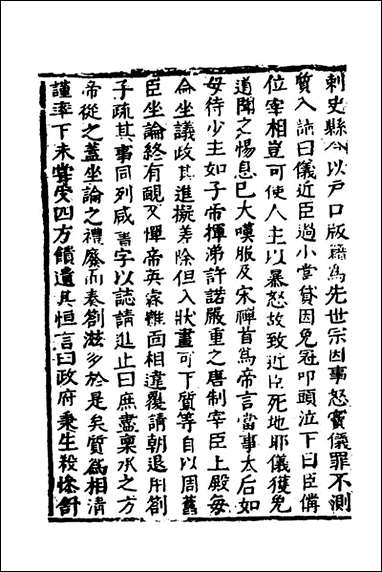 刺史縣令以戸口版籍爲先世宗因事怒竇儀罪不測
質入諫曰儀近臣過小當貸因免冠叩頭泣下曰臣備
位宰相豈可使人主以暴怒故致近臣死地耶儀獲免
道聞之惕息已大嘆服及宋禪首爲帝言當事太后如
母待少主如子帝揮涕許諾嚴重之唐制宰臣上殿每
命坐議政其進擬差除但入狀畫可下質等自以周舊
臣坐論終有靦又憚帝英睿難面相違覆請朝退用劄
子疏其事同列咸書字以誌請進止曰庶盡稟承之方
帝從之蓋坐論之禮廢而奏劄滋多於是矣質爲相清
謹率下未嘗受四方饋遺其恒言曰政府秉生殺條舒